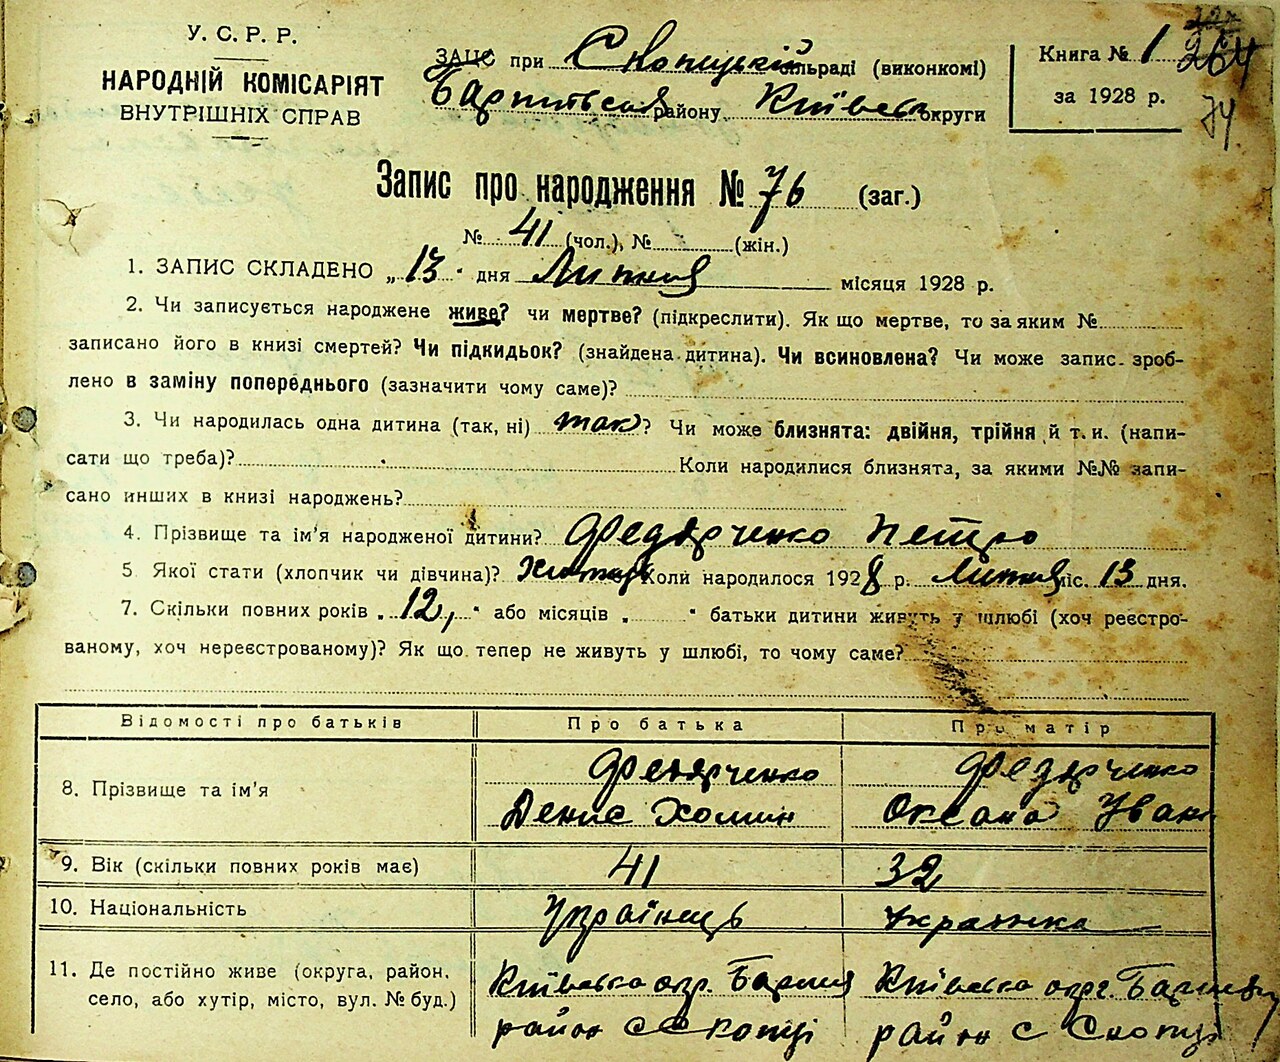 У. С. Р. Р.
НАРОДНІЙ КОМІСАРІЯТ
ВНУТРІШНІХ СПРАВ
ЗАЦС при Скопецькій сільраді (виконкомі)
району Київськ округи
Книга № 1
264
за 1928 р.
74
Запис про народження № 76 (заг.)
№ 41 (чол.), № (жін.)
1. ЗАПИС СКЛАДЕНО „ 13 " дня Липня місяця 1928 р.
2. Чи записується народжене живе? чи мертве? (підкреслити). Як що мертве, то за яким №
записано його в книзі смертей? Чи підкидьок? (знайдена дитина). Чи всиновлена? Чи може запис зроб-
лено в заміну попереднього (зазначити чому саме)?
3. Чи народилась одна дитина (так, ні) так? Чи може близнята: двійня, трійня й т. и. (напи-
сати що треба)? Коли народилися близнята, за якими №№ запи-
сано инших в книзі народжень?
4. Прізвище та ім'я народженої дитини? Федярченко Петро
5 Якої стати (хлопчик чи дівчина)? Коли народилося 1928 р. Липня міс. 13 дня.
7. Скільки повних років „ 12, " або місяців „ " батьки дитини живуть у шлюбі (хоч реєстро-
ваному, хоч нереєстрованому)? Як що тепер не живуть у шлюбі, то чому саме?
Відомості про батьків Про батька Про матір
8. Прізвище та ім'я Федярченко Денис Хомин Федярченко Оксана Іван
9. Вік (скільки повних років має) 41 32
10. Національність Українець Українка
11. Де постійно живе (округа, район, Київська окр. Київська окр.
село, або хутір, місто, вул. № буд.) район с Скопці район с Скопці